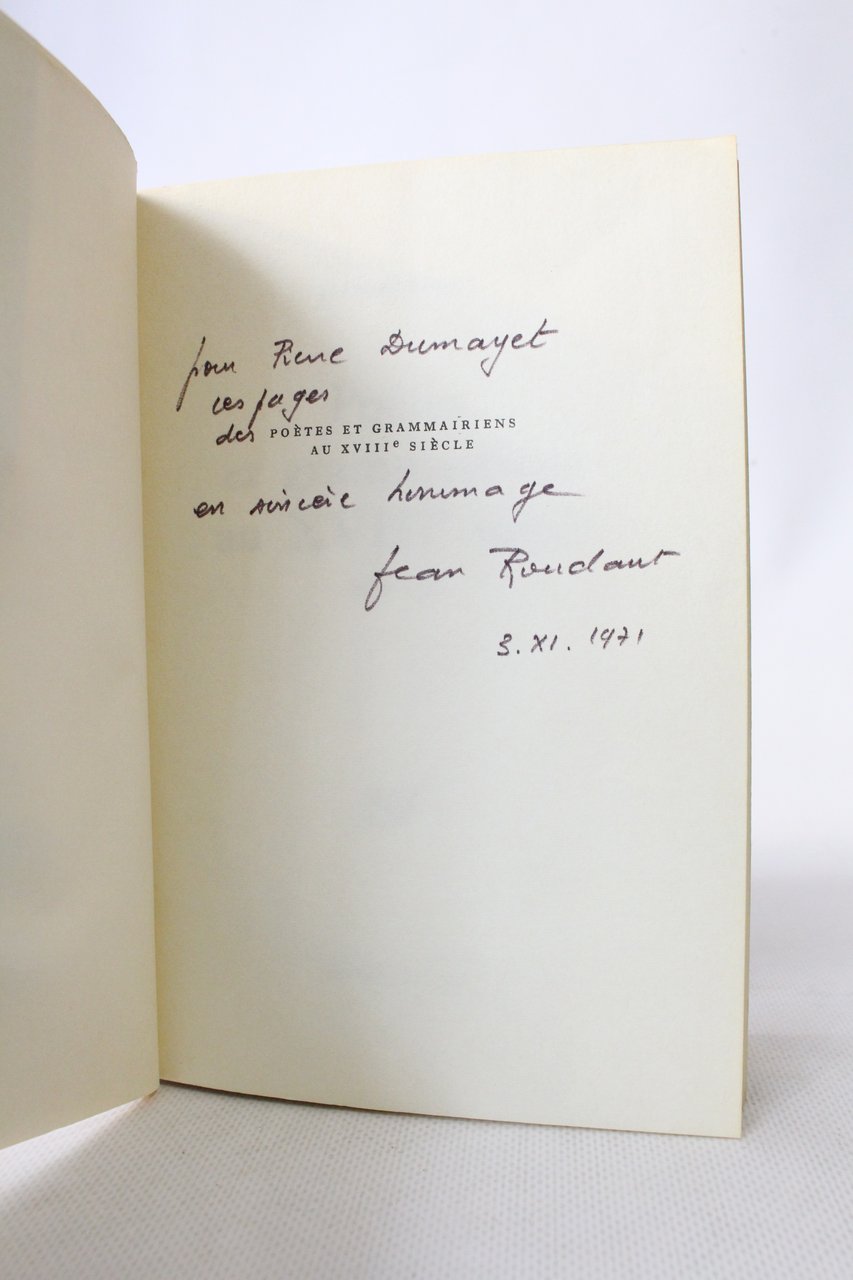 pour Pierre Dumayet
ces pages
des POÈTES ET GRAMMAIRIENS
AU XVIIIe SIÈCLE
en sincère hommage
Jean Roudaut
3. XI. 1971